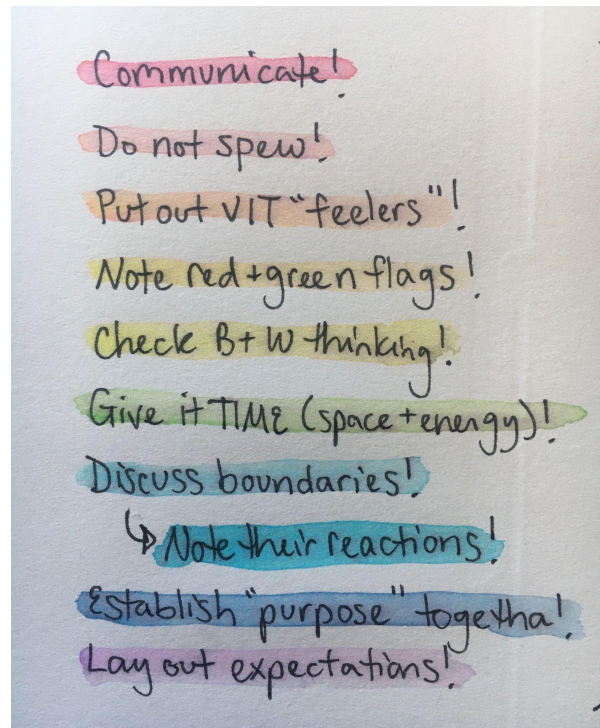 Communicate!
Do not spew!
Put out VIT "feelers"!
Note red+green flags!
Check B+W thinking!
Give it TIME (space+energy)!
Discuss boundaries!
↳ Note their reactions!
Establish "purpose" togetha!
Lay out expectations!